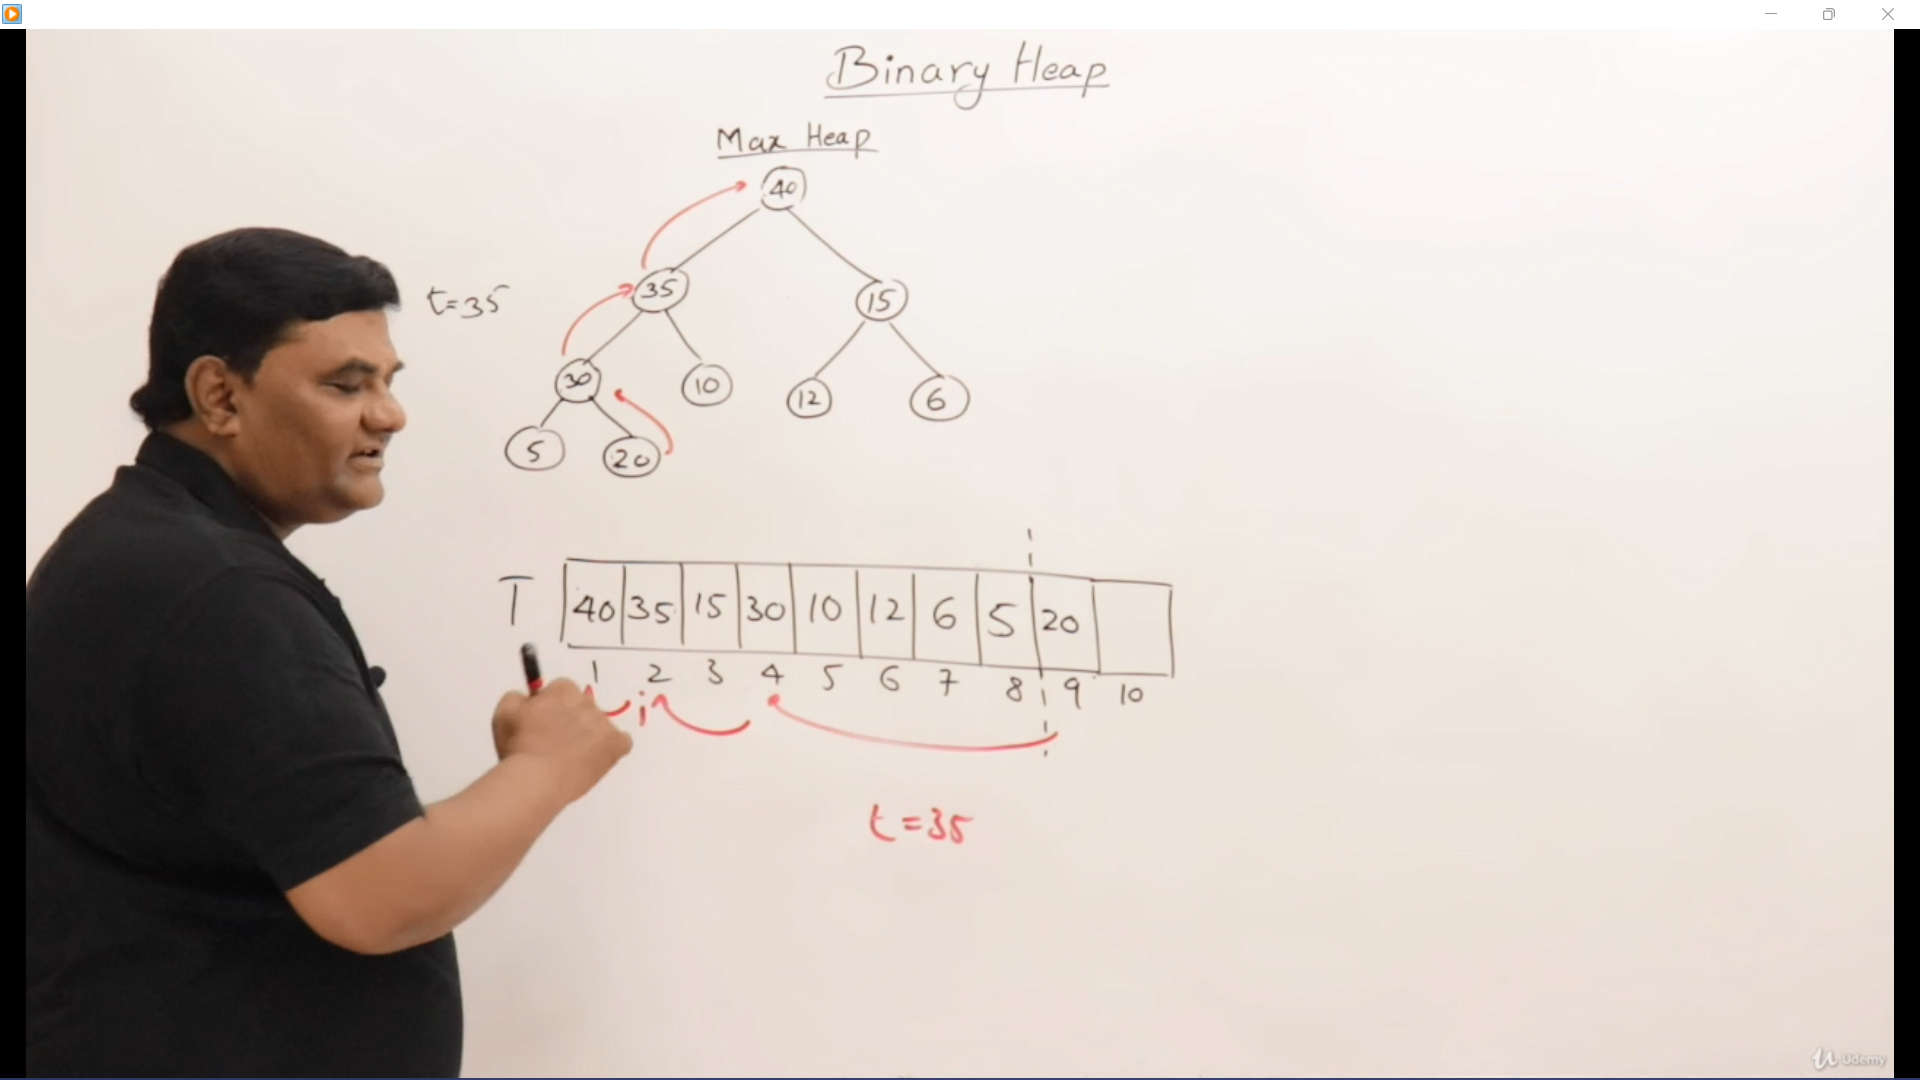 Binary Heap
Max Heap
40
t=35
35
15
30
10
12
6
5
20
T 40 35 15 30 10 12 6 5 20
1 2 3 4 5 6 7 8 9 10
i
t=35
Udemy